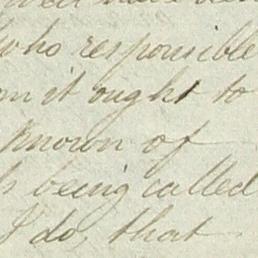 who responsible
it ought to
known of
being called
I do, that